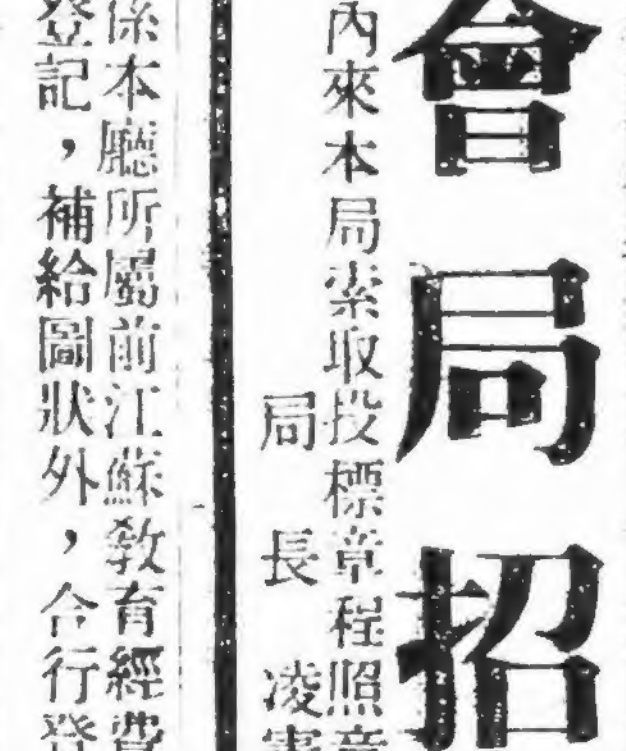 會局招
內來本局索取投標章程照章
局長凌
係本廳所屬前江蘇敎育經費
登記，補給圖狀外，合行登